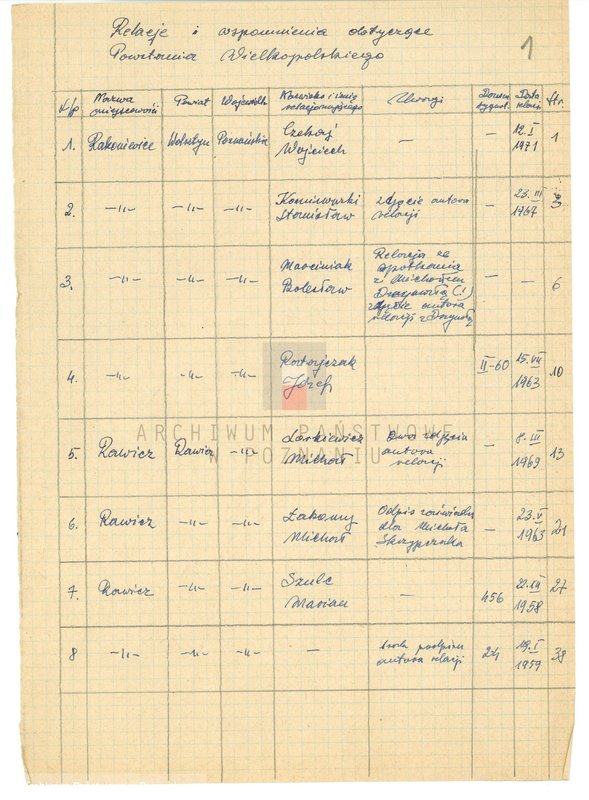 Relacje i wspomnienia dotyczące
Powstania Wielkopolskiego
1
L/p Nazwa miejscowości Powiat Województ. Nazwisko i imię relacjonującego Uwagi Dawna sygnat. Data relacji Str.
1. Rakoniewice Wolsztyn Poznańskie Wojciech — — 12.I 1971 1
2. —"— —"— —"— Stanisław zdjęcie autora relacji — 23.III 1967 3
3. —"— —"— —"— Marciniak Bolesław Relacja ze spotkania z Michałem Drzymałą (!) zdjęcie autora relacji z Drzymałą — — 6
4. —"— —"— —"— Ratajczak Józef II-60 15.VII 1963 10
ARCHIWUM PAŃSTWOWE
W POZNANIU
5. Rawicz Rawicz —"— Laskiewicz Michał Dwa zdjęcia autora relacji — 8.III 1969 13
6. Rawicz —"— —"— Łakomy Michał Odpis zaświadcz. dla Michała Skrzypczaka — 23.V 1963 21
7. Rawicz —"— —"— Szulc Marian — 456 1958 27
8 —"— —"— —"— — brak podpisu autora relacji 24 19.I 1959 38